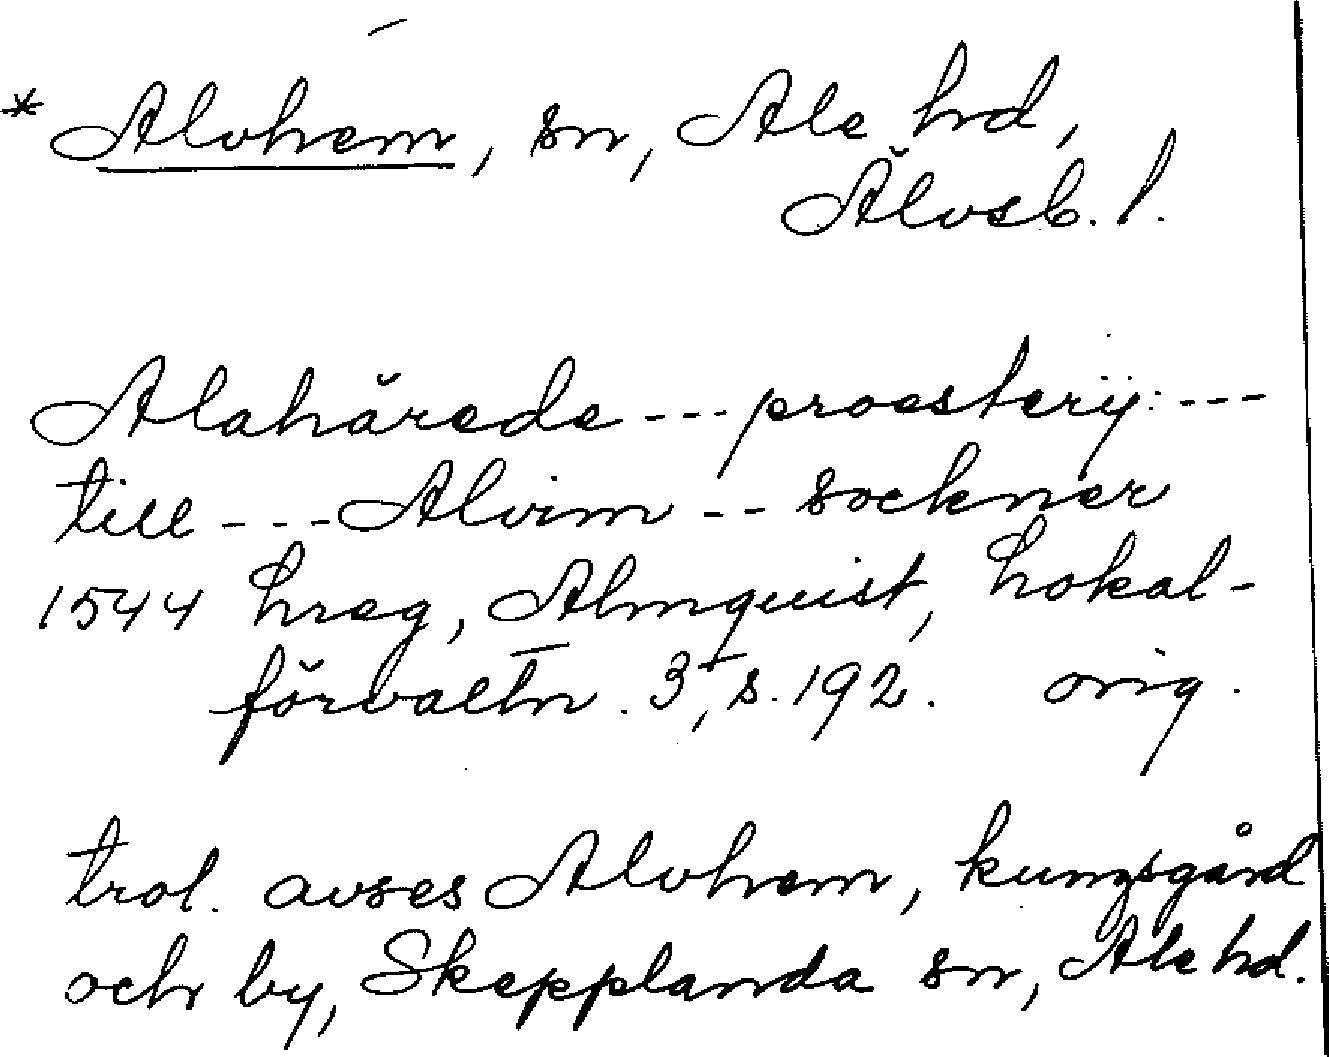 * Alvhem, sn, Ale hd,
Älvsb. l.
Alahärede --- proesterij: ---
till --- Alvim -- sockner
1544 hreg, Almquist, Lokal-
förvaltn. 3, s. 192. orig.
trol. avses Alvhem, kungsgård
och by, Skepplanda sn, Ale hd.